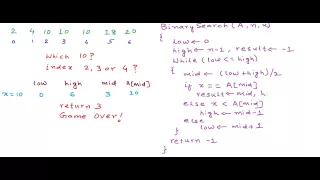 2 4 10 10 10 18 20
0 1 2 3 4 5 6
Which 10?
index 2, 3 or 4 ?
low high mid A[mid]
x=10 0 6 3 10
return 3
Game Over!
BinarySearch (A, n, x)
{
low ← 0
high ← n-1, result ← -1
While (low <= high)
{ mid ← (low+high)/2
if x == A[mid]
result ← mid, h
else x < A[mid]
high ← mid-1
else
low ← mid+1
}
return -1
}